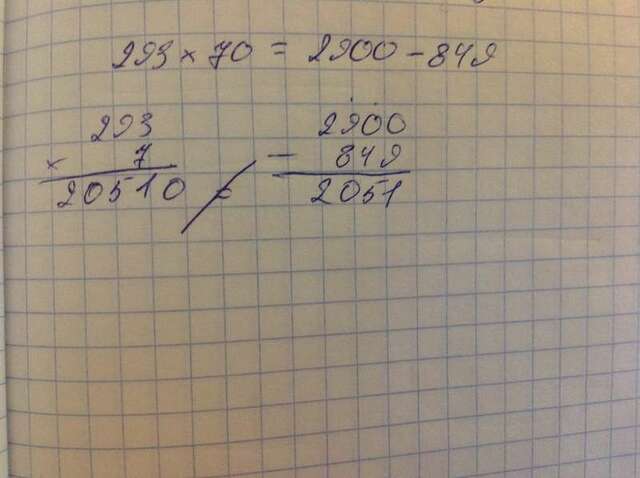 293 × 70 = 2900 - 849
293
× 7
20510
2900
- 849
2051
≠